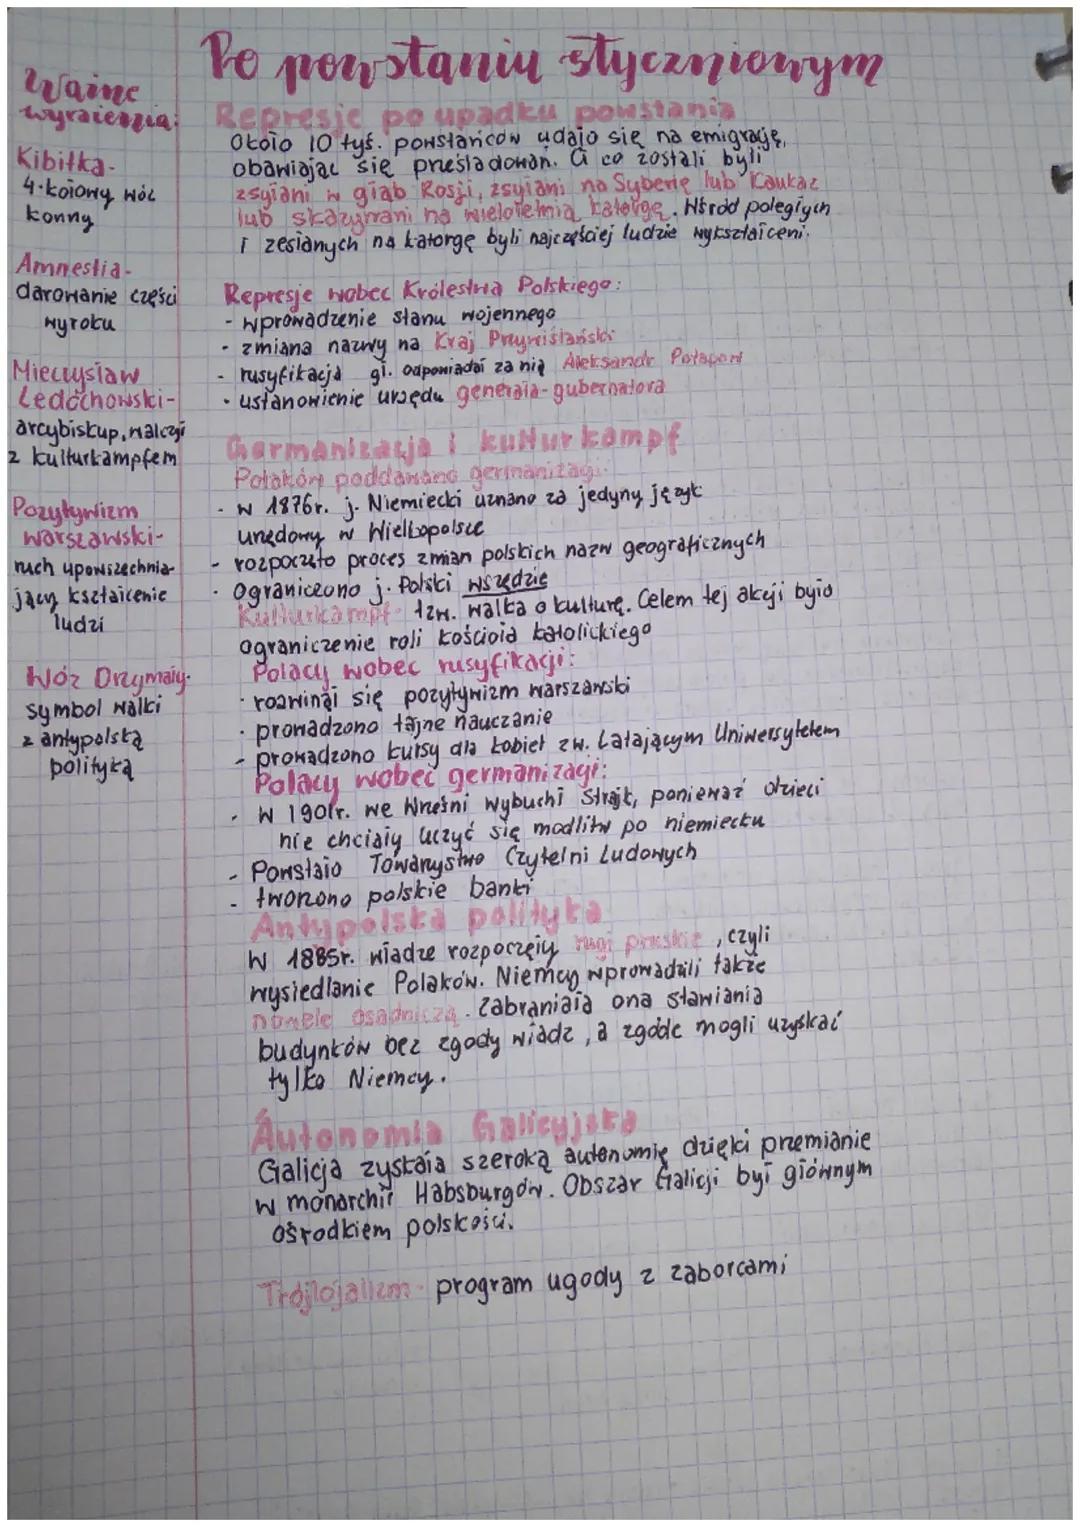 Po powstaniu styczniowym
Ważne
wyrażenia:
Kibitka-
4-kołowy wóz
konny
Amnestia-
darowanie części
wyroku
Mieczysław
Ledóchowski-
arcybiskup, walczył
z kulturkampfem
Pozytywizm
warszawski-
ruch upowszechnia-
jący kształcenie
ludzi
Wóz Drzymały-
symbol walki
z antypolską
polityką
Represje po upadku powstania
Około 10 tyś. powstańców udało się na emigrację,
obawiając się prześladowań. Ci co zostali byli
zsyłani w głąb Rosji, zsyłani na Syberię lub Kaukaz
lub skazywani na wieloletnią katorgę. Wśród poległych
i zesłanych na katorgę byli najczęściej ludzie wykształceni.
Represje wobec Królestwa Polskiego:
- wprowadzenie stanu wojennego
- zmiana nazwy na Kraj Przywiślański
- rusyfikacja gł. odpowiadał za nią Aleksandr Potapow
- ustanowienie urzędu generała-gubernatora
Germanizacja i kulturkampf
Polaków poddawano germanizacji.
- w 1876r. j. Niemiecki uznano za jedyny język
urzędowy w Wielkopolsce
- rozpoczęto proces zmian polskich nazw geograficznych
- Ograniczono j. Polski wszędzie
Kulturkampf- tzw. walka o kulturę. Celem tej akcji było
ograniczenie roli kościoła katolickiego
Polacy wobec rusyfikacji:
- rozwinął się pozytywizm warszawski
- prowadzono tajne nauczanie
- prowadzono kursy dla kobiet zw. Latającym Uniwersytetem
Polacy wobec germanizacji:
- W 1901r. we Wrześni wybuchł Strajk, ponieważ dzieci
nie chciały uczyć się modlitw po niemiecku
- Powstało Towarzystwo Czytelni Ludowych
- tworzono polskie banki
Antypolska polityka
W 1885r. władze rozpoczęły rugi pruskie, czyli
wysiedlanie Polaków. Niemcy wprowadzili także
nowele osadniczą. Zabraniała ona stawiania
budynków bez zgody władz, a zgodę mogli uzyskać
tylko Niemcy.
Autonomia Galicyjska
Galicja zyskała szeroką autonomię dzięki przemianie
w monarchii Habsburgów. Obszar Galicji był głównym
ośrodkiem polskości.
Trójlojalizm- program ugody z zaborcami